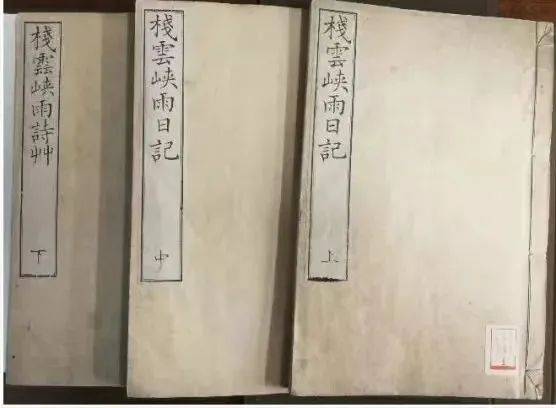 棧雲峽雨日記
上
棧雲峽雨日記
中
棧雲峽雨詩艸
下